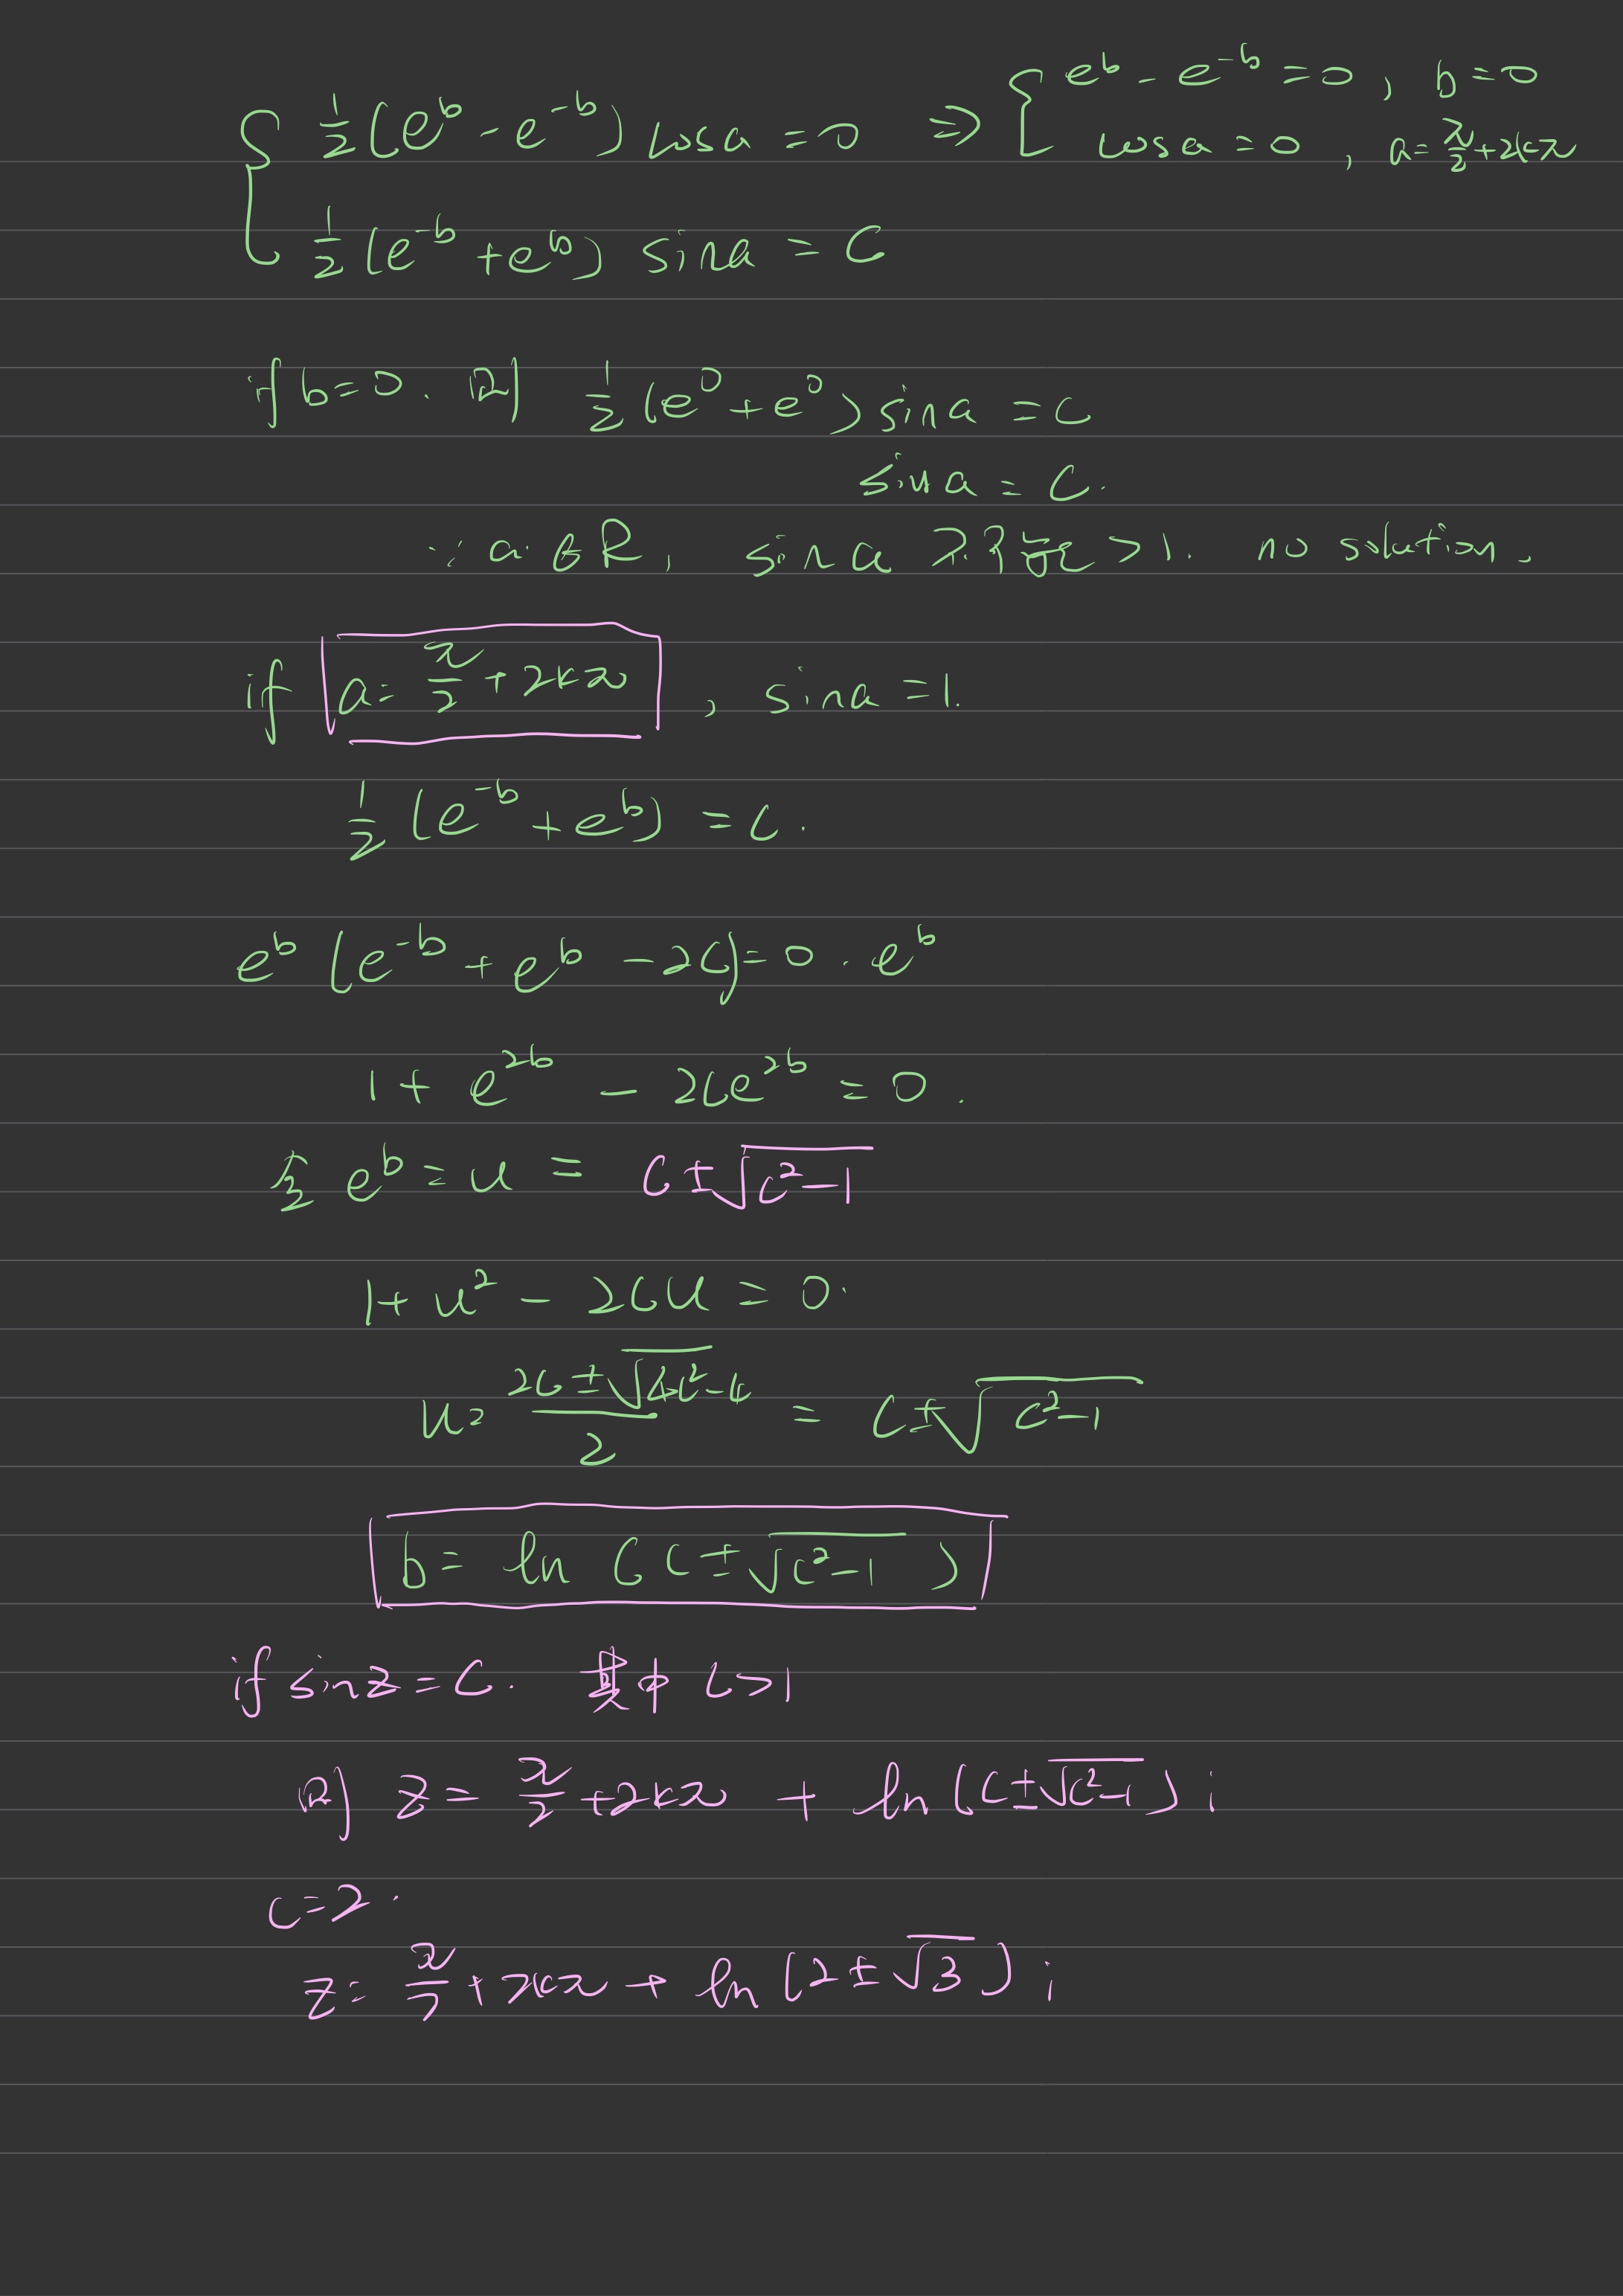 { 1/2 (e^b - e^-b) cos a = 0 ⇒ { e^b - e^-b = 0, b=0
cos a = 0, a = π/2 + 2kπ
1/2 (e^-b + e^b) sin a = C
if b=0. 则 1/2 (e^0 + e^0) sin a = C
sin a = C.
∵ a ∈ R, sin a 不可能 > 1. no solution.
if a = π/2 + 2kπ, sin a = 1.
1/2 (e^-b + e^b) = C.
e^b (e^-b + e^b - 2C) = 0 · e^b
1 + e^2b - 2Ce^2b = 0.
令 e^b = u = C ± √(C²-1)
1 + u² - 2Cu = 0.
u = (2C ± √(4C²-4))/2 = C ± √(C²-1)
b = ln (C ± √(C²-1))
if sin z = C. 其中 C>1
则 z = π/2 + 2kπ + ln(C ± √(C²-1)) i
C=2.
z = π/2 + 2kπ + ln(2 ± √3) i